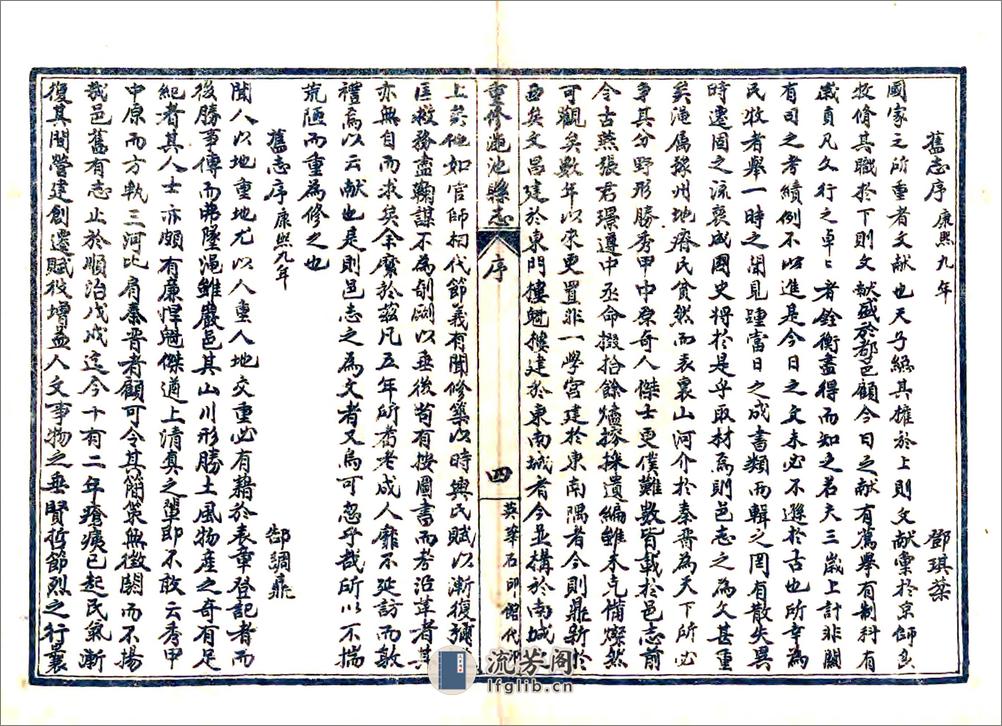 舊志序 康熙九年 鄧琪棻
國家之所重者文献也天子總其權於上則文献彙於京師岳
牧脩其職於下則文献盛於都邑顧今日之献有薦舉有制科有
歲貢凡久行之卓卓者銓衡盡得而知之若夫三歲上計非關
有司之考績例不以進是今日之文未必不遜於古也所幸為
民牧者舉一時之聞見踵當日之成書類而輯之罔有散失異
時遷固之流裒成國史将於是乎取材焉則邑志之為文甚重
矣澠属豫州地瘠民貧然而表裏山河介於秦晋為天下所必
爭其分野形勝秀甲中原奇人傑士更僕難數皆載於邑志前
令古燕張君璟遵中丞命掇拾餘爐搽採遺編雖未克備燦然
可觀矣數年以來更置非一學宮建於東南隅者今則鼎新於
西矣文昌建於東門樓魁樓建於東南城者今並構於南城
重修澠池縣志 序 四 英華石印館代印
上矣他如官師相代節義有聞修築以時興民賦以漸復彌
匡救務盡鞠謀不為剞劂以垂後苟有按圖書而考沿革者其
亦無自而求矣余糜於茲凡五年所耆老成人靡不延訪而敦
禮焉以云献也是則邑志之為文者又烏可忽乎哉所以不揣
荒陋而重為修之也
舊志序 康熙九年 郜綢鼎
聞人以地重地尤以人重人地交重必有藉於表章登記者而
後勝事傳而弗墜澠雖嚴邑其山川形勝土風物產之奇有足
紀者其人士亦頗有廉悍魁傑遒上清真之輩即不敢云秀甲
中原而方軌三河比肩秦晋者顧可令其簡策無徵闕而不揚
哉邑舊有志止於順治戊戌迄今十有二年瘡痍已起民氣漸
復其間營建創遷賦役增益人文事物之垂賢哲節烈之行曩
流芳阁
lfglib.cn